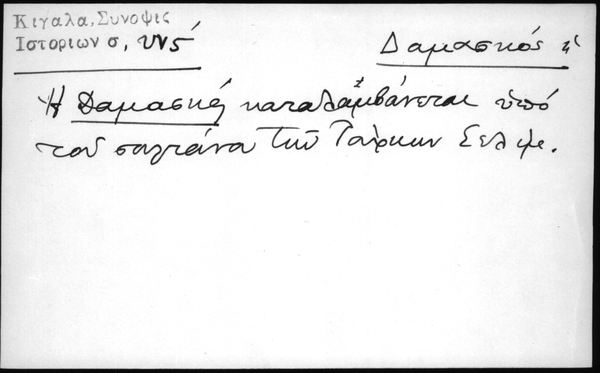 Κιγαλα, Συνοψις
Ιστοριων σ, υνς΄
Δαμασκός
Ἡ Δαμασκός καταλαμβάνεται ὑπό
τοῦ σουλτάνου τῶν Τούρκων Σελήμ.